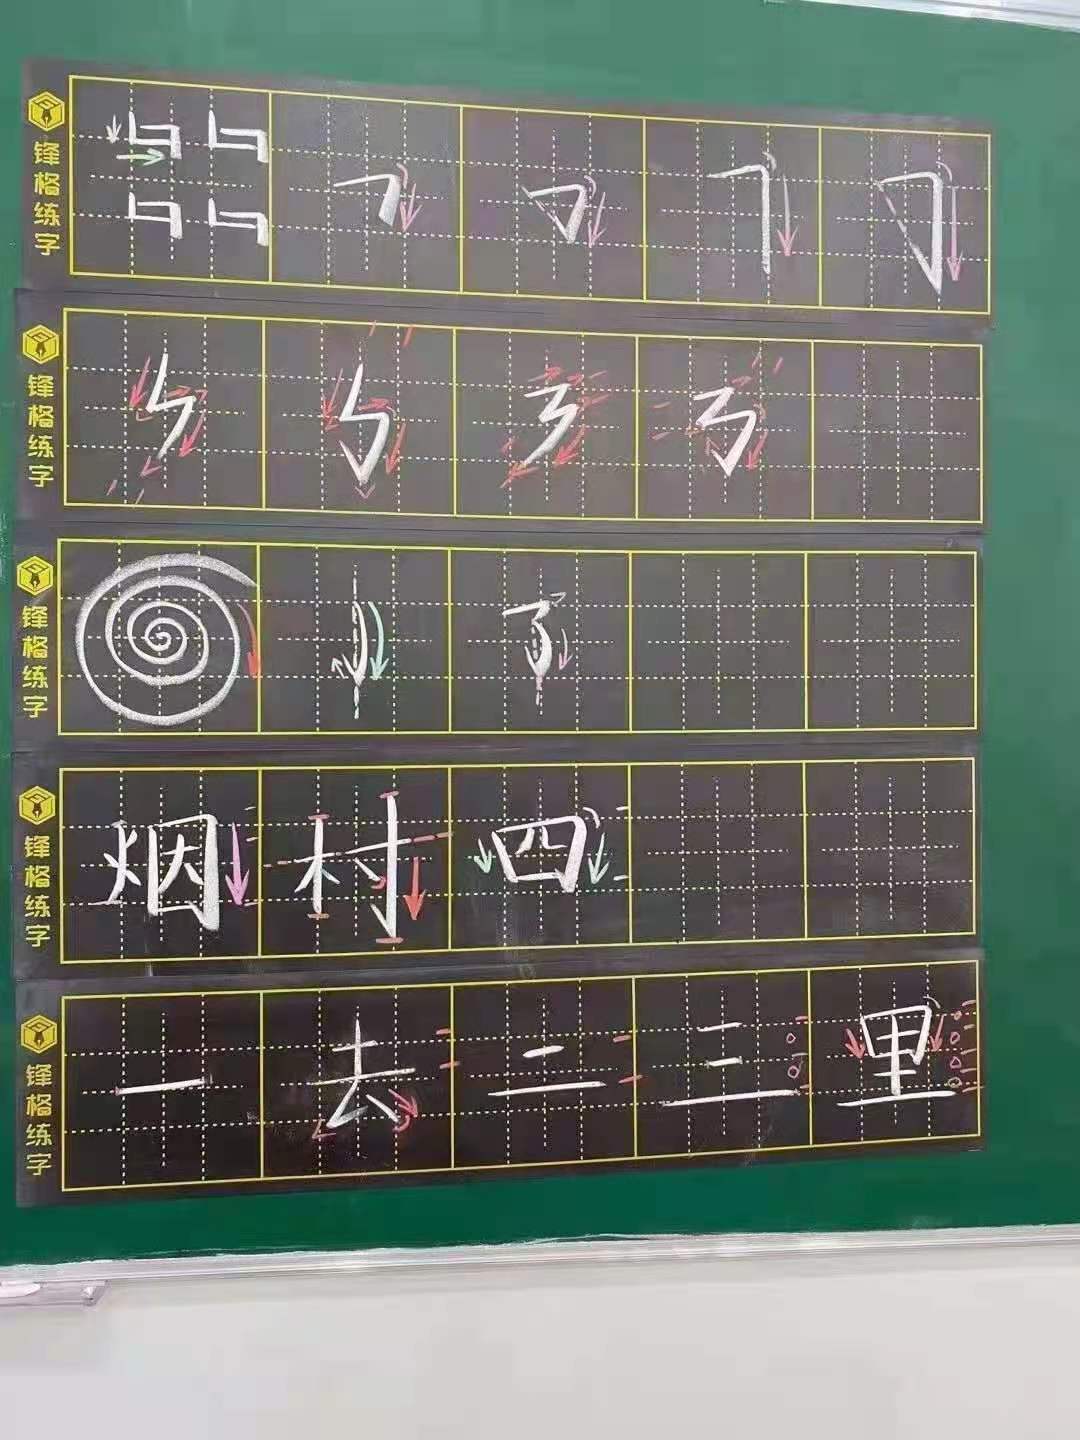 锋格练字
锋格练字
锋格练字
锋格练字
烟村四
锋格练字
一去二三里